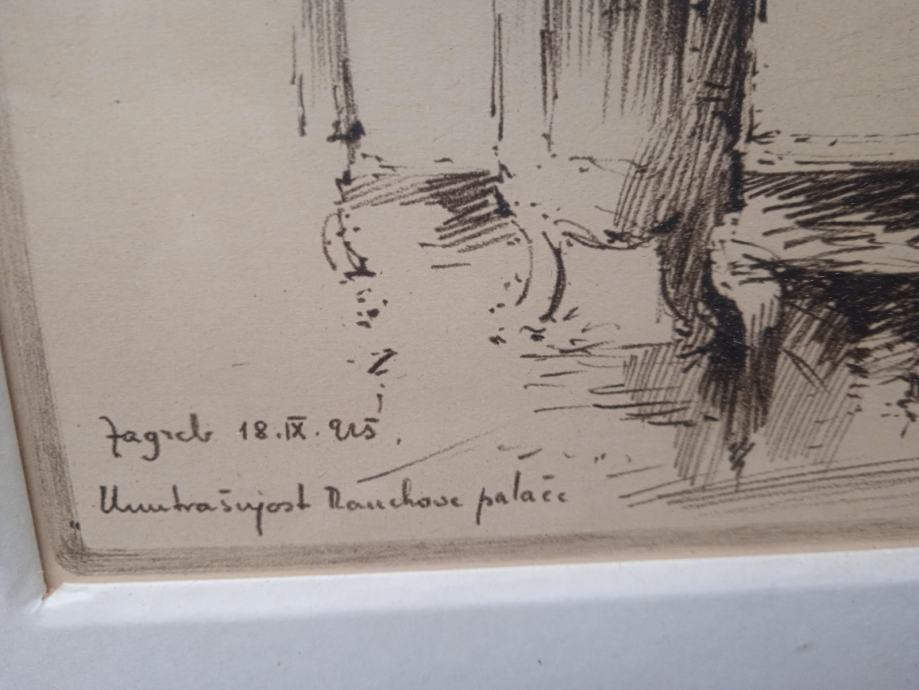 Zagreb 18.IX.925.
Unutrašnjost Rauchove palače